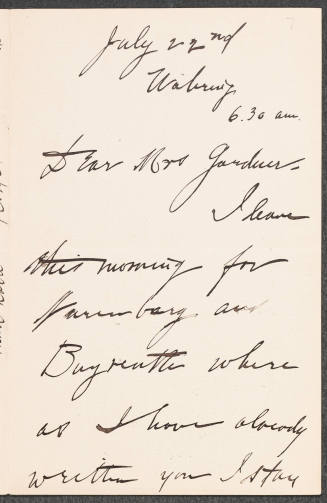 July 22nd
Währing
6.30 am.
Dear Mrs Gardner.
I leave
this morning for
Nuremburg and
Bayreuth where
as I have already
written you I stay